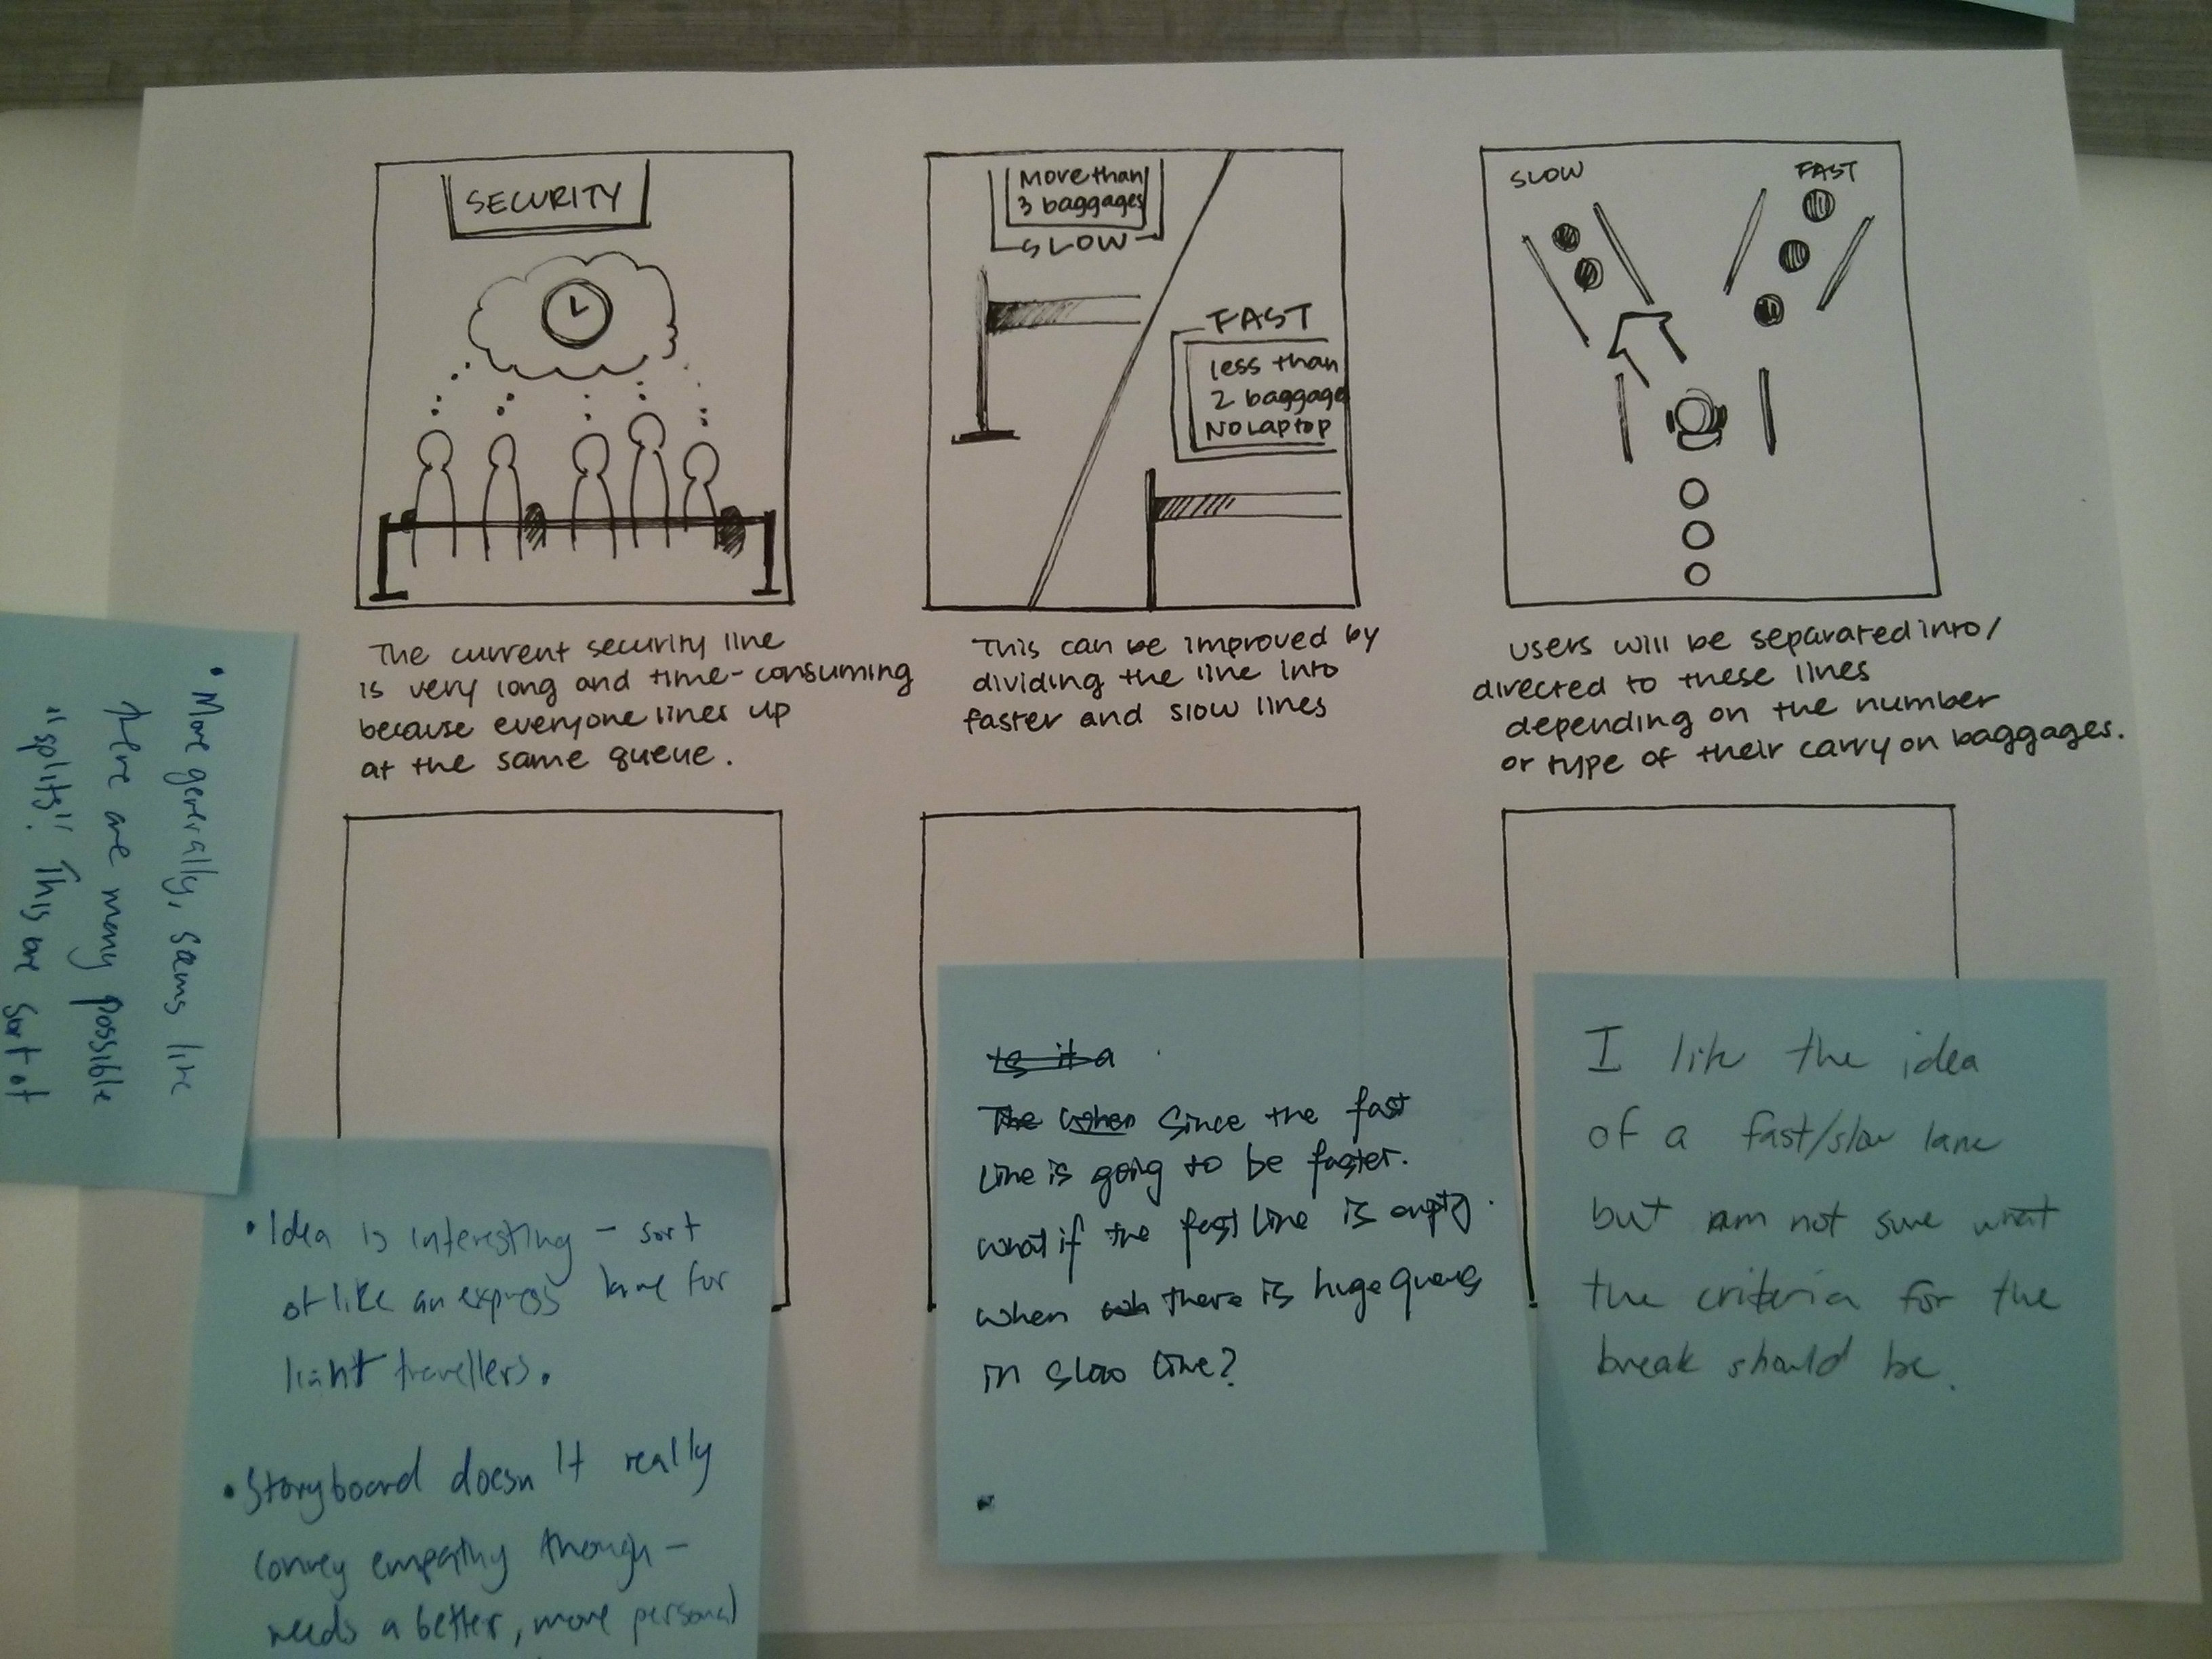 SECURITY
The current security line
is very long and time-consuming
because everyone lines up
at the same queue.
More than
3 baggages
SLOW
FAST
less than
2 baggage
No laptop
This can be improved by
dividing the line into
faster and slow lines
SLOW
FAST
users will be separated into/
directed to these lines
depending on the number
or type of their carry on baggages.
• More generally, seems like
there are many possible
"splits". This are sort of
• Idea is interesting – sort
of like an express lane for
light travellers.
• Storyboard doesn't really
convey empathy though –
needs a better, more personal
Is it a
The when Since the fast
Line is going to be faster.
what if the fast Line is empty.
when there is huge queues
in slow line?
I like the idea
of a fast/slow lane
but am not sure what
the criteria for the
break should be.